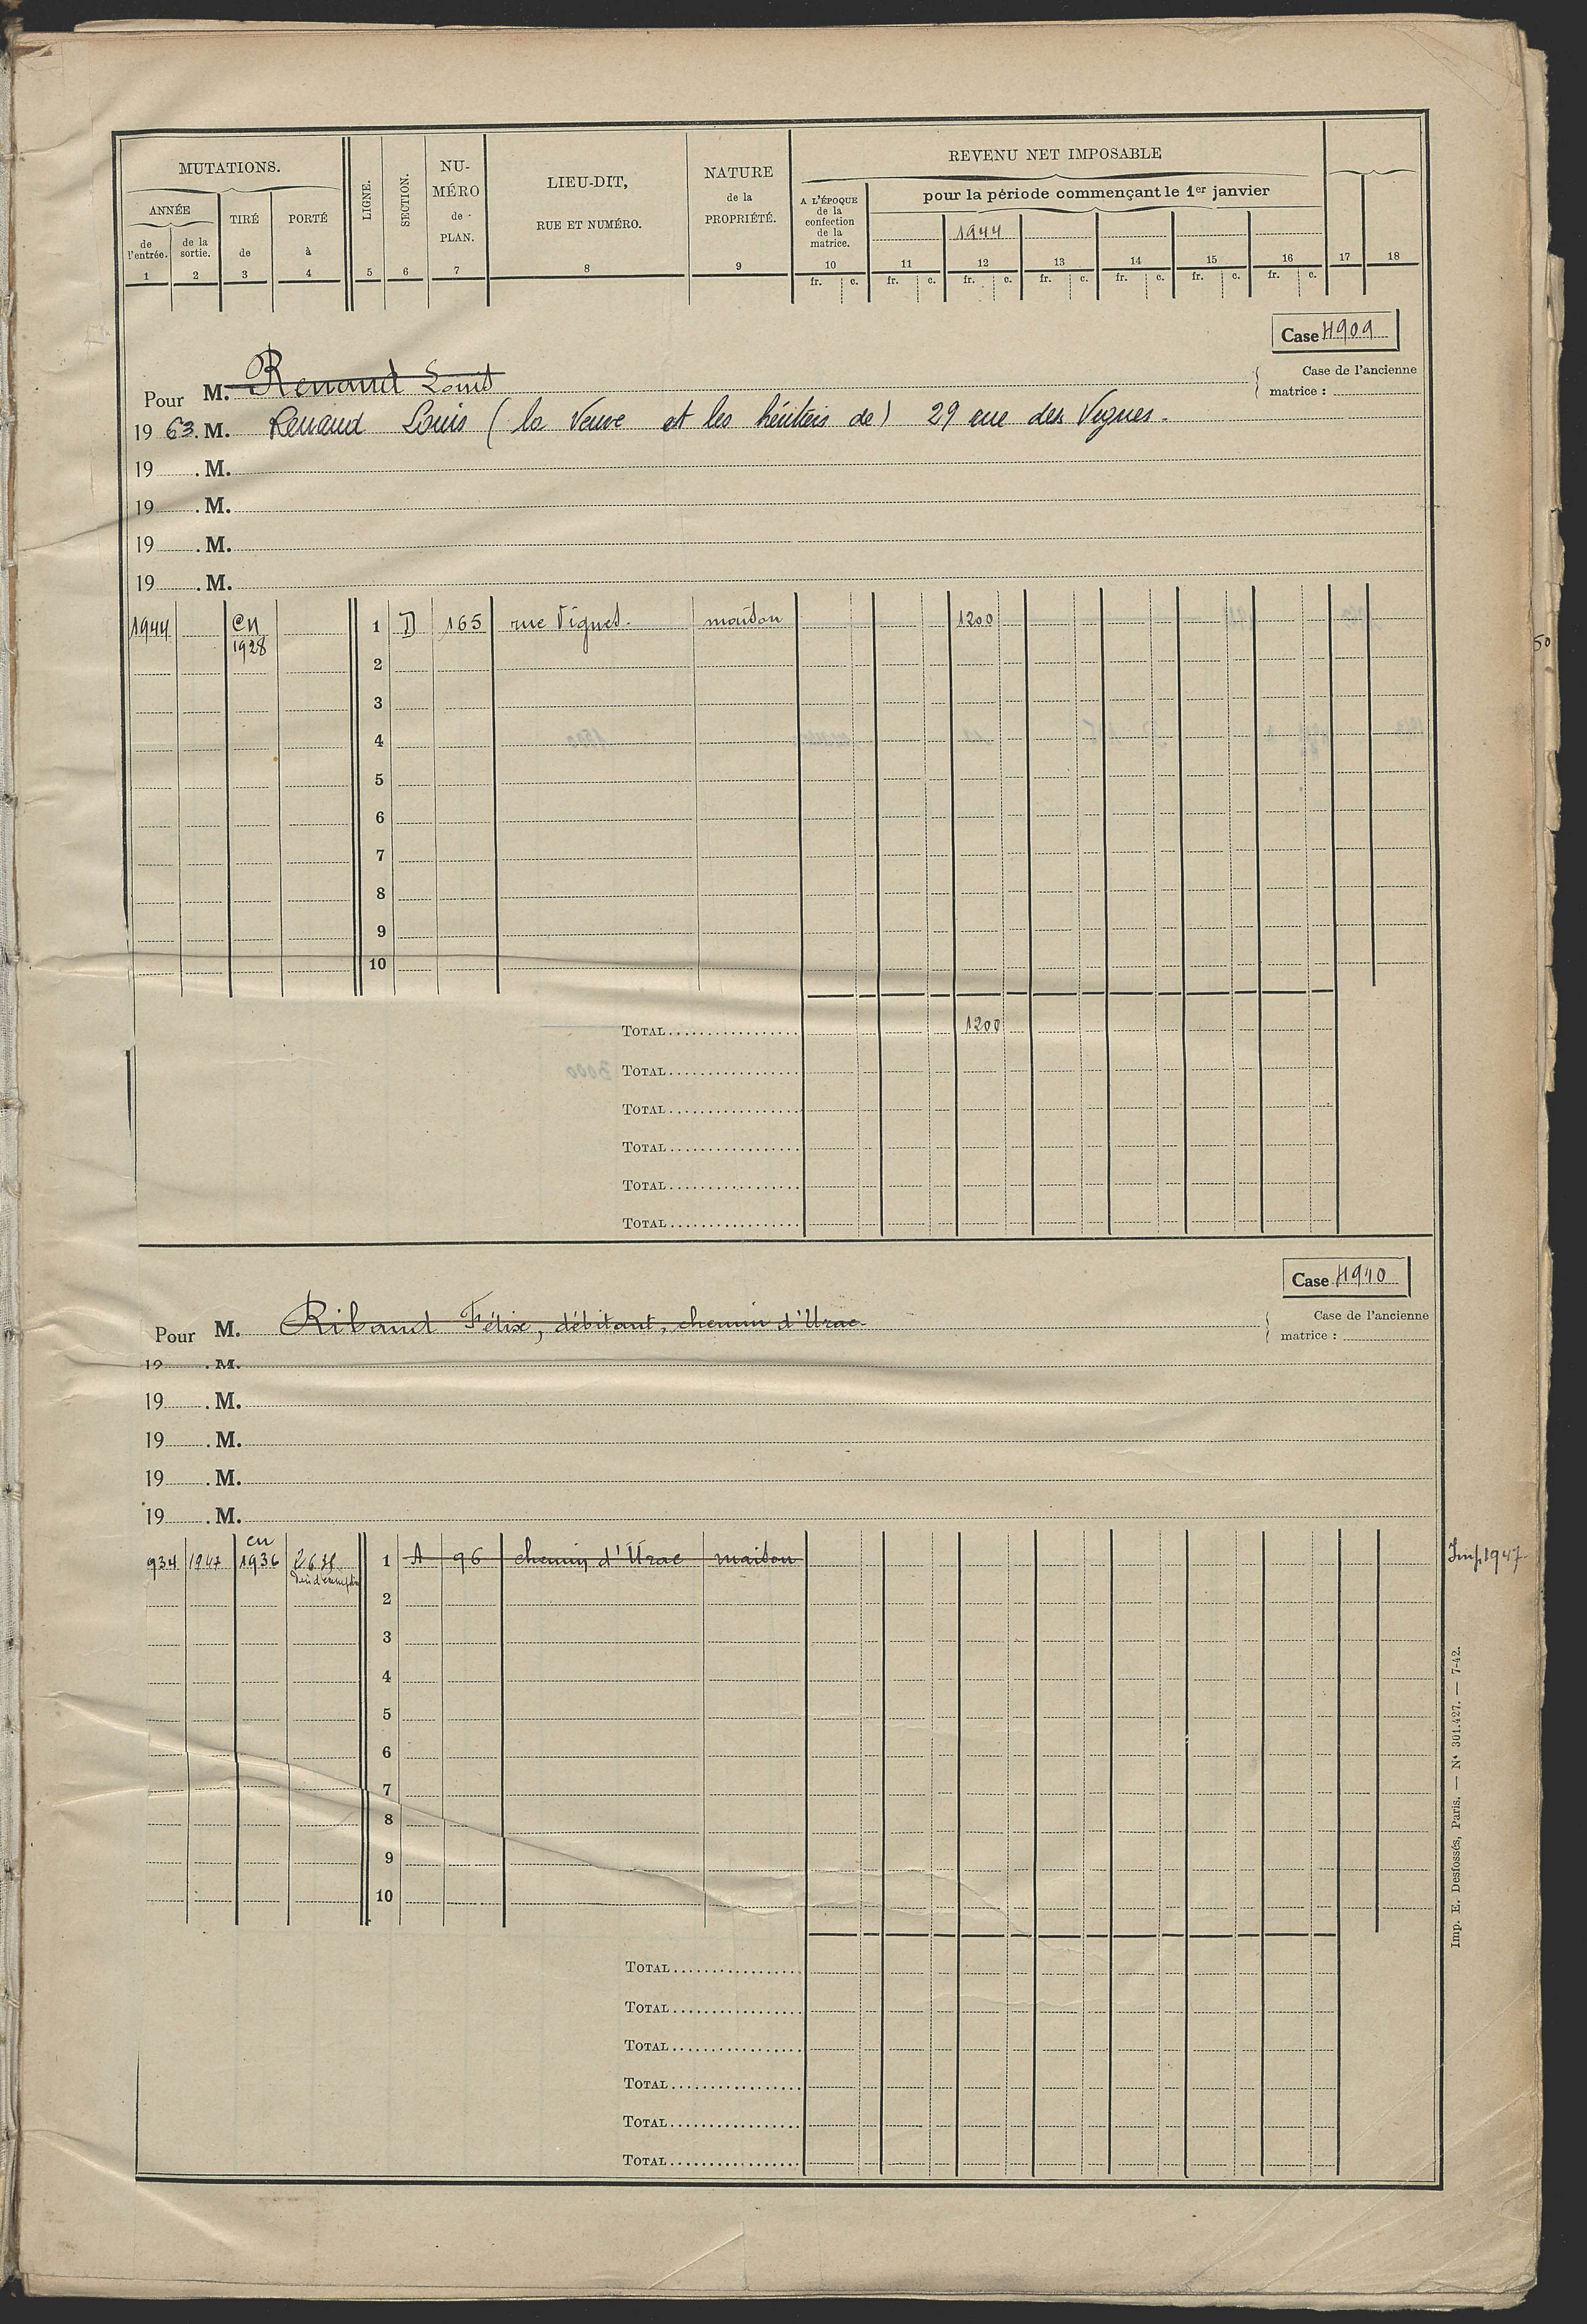 MUTATIONS.
ANNÉE
de l'entrée.
de la sortie.
TIRÉ de
PORTÉ à
LIGNE.
SECTION.
NU-
MÉRO
de
PLAN.
LIEU-DIT,
RUE ET NUMÉRO.
NATURE
de la
PROPRIÉTÉ.
REVENU NET IMPOSABLE
A L'ÉPOQUE
de la
confection
de la
matrice.
pour la période commençant le 1er janvier
1944
1 2 3 4 5 6 7 8 9 10 11 12 13 14 15 16 17 18
fr. c. fr. c. fr. c. fr. c. fr. c. fr. c. fr. c.
Case 4909
Case de l'ancienne
matrice :
Pour M. Renaud Louis
19 63. M. Renaud Louis (la Veuve et les héritiers de) 29 rue des Vignes.
19 . M.
19 . M.
19 . M.
19 . M.
1944 CN 1928 1 D 165 rue Vignes. maison 1200
2
3
4
5
6
7
8
9
10
TOTAL 1200
TOTAL
TOTAL
TOTAL
TOTAL
TOTAL
Case 4910
Case de l'ancienne
matrice :
Pour M. Ribaud Félix, débitant, chemin d'Urac
19 . M.
19 . M.
19 . M.
19 . M.
19 . M.
934 1947 en 1936 1 A 96 chemin d'Urac maison Imp. 1947
2
3
4
5
6
7
8
9
10
TOTAL
TOTAL
TOTAL
TOTAL
TOTAL
TOTAL
Imp. E. Desfossés, Paris. — Nt 301.427. — 7-42.
50